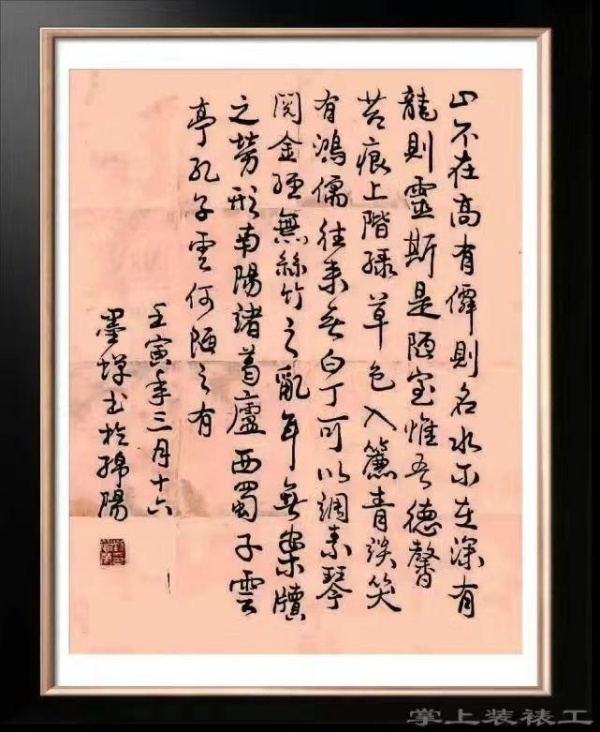 山不在高有僊則名水不在深有
龍則靈斯是陋室惟吾德馨
苔痕上階綠草色入簾青談笑
有鴻儒往来無白丁可以調素琴
閱金經無絲竹之亂耳無案牘
之勞形南陽諸葛廬西蜀子雲
亭孔子雲何陋之有
壬寅年三月十六
墨书於綿陽
掌上装裱工